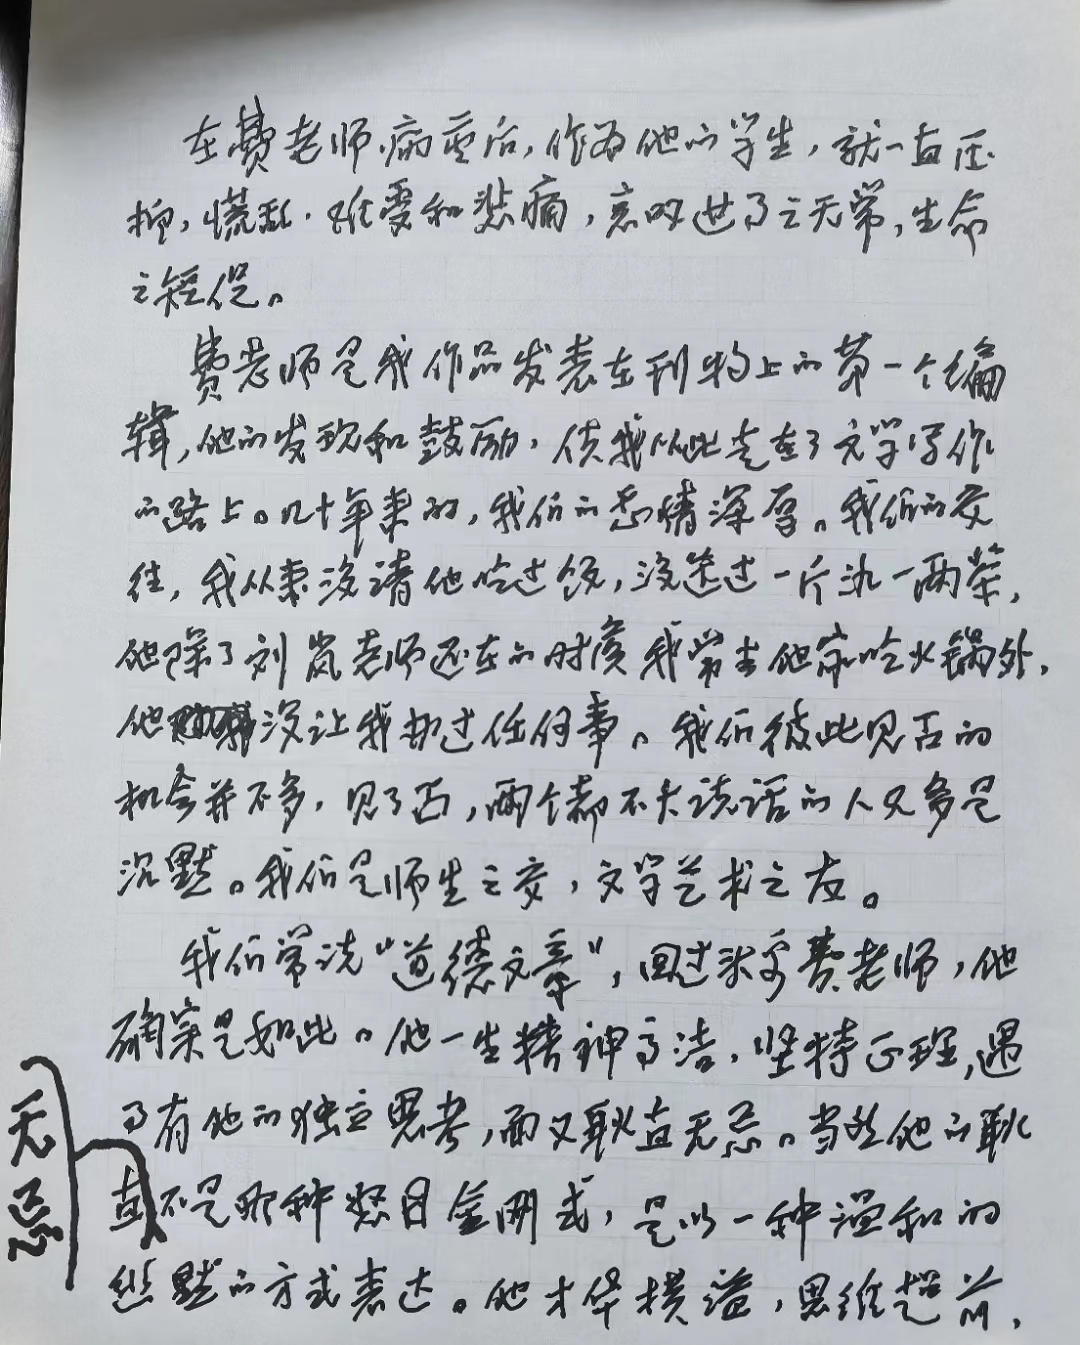 在费老师病重后，作为他的学生，就一直压
抑，慌乱，难受和悲痛，哀叹世事之无常，生命
之短促。
费老师是我作品发表在刊物上的第一个编
辑，他的发现和鼓励，使我从此走在了文学写作
的路上。几十年来的，我们的感情深厚。我们的交
往，我从来没请他吃过饭，没送过一斤酒一两茶，
他除了刘岚老师还在的时候我常去他家吃火锅外，
他没让我办过任何事。我们彼此见面的
机会并不多，见了面，两个都不大说话的人又多是
沉默。我们是师生之交，文学艺术之友。
我们常说“道德文章”，回过头看费老师，他
确实是如此。他一生精神高洁，坚持正理，遇
事有他的独立思考，而又耿直无忌。当然他的耿
直无忌不是那种怒目金刚式，是以一种温和的
幽默的方式表达。他才华横溢，思维超前，